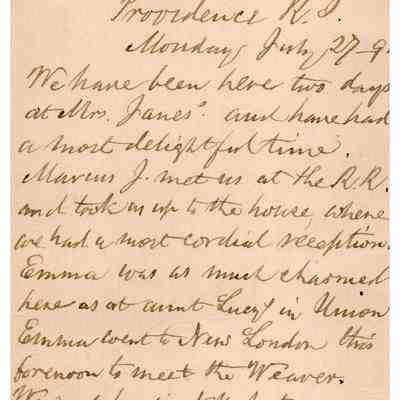 Providence R. I.
Monday July 27 - 9
We have been here two days
at Mrs. Janes'. and have had
a most delightful time.
Marcus J. met us at the R.R.
and took us up to the house, where
we had a most cordial reception.
Emma was as much charmed
here as at aunt Lucy's in Union
Emma went to New London this
forenoon to meet the Weaver.